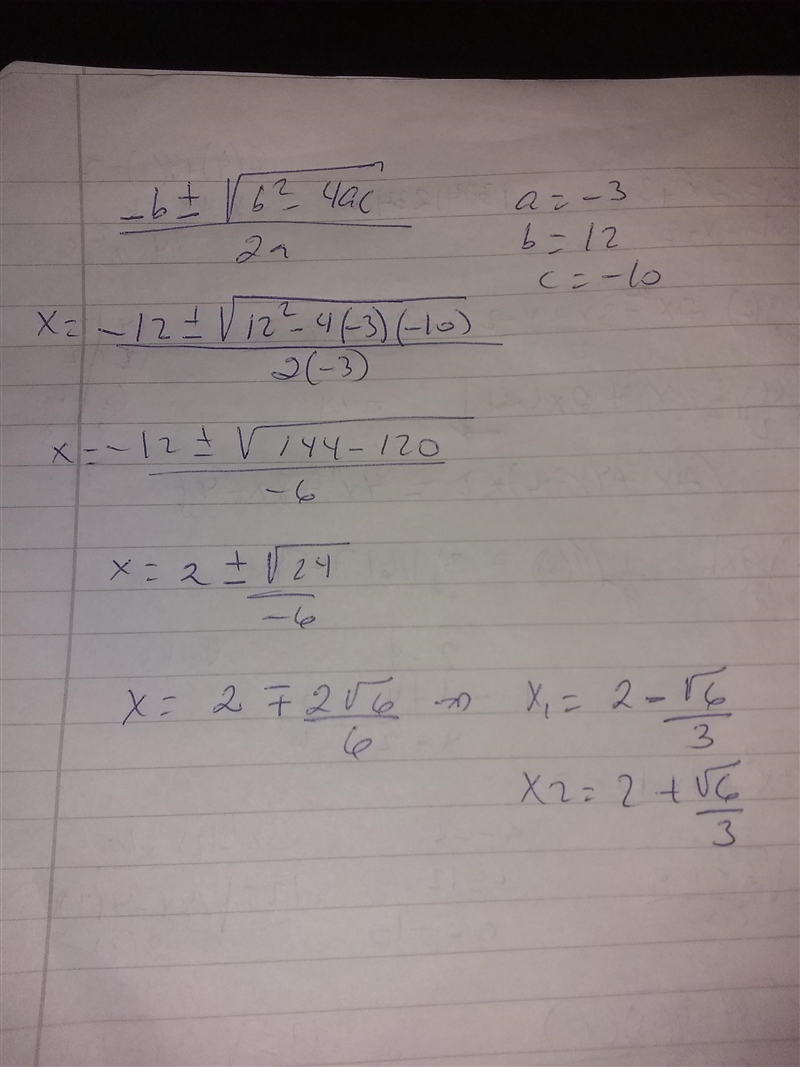 -b ± √(b² - 4ac) / 2a
a = -3
b = 12
c = -10
x = -12 ± √(12² - 4(-3)(-10)) / 2(-3)
x = -12 ± √(144 - 120) / -6
x = 2 ± √24 / -6
x = 2 ∓ 2√6 / 6 ⇝ x₁ = 2 - √6 / 3
x2 = 2 + √6 / 3